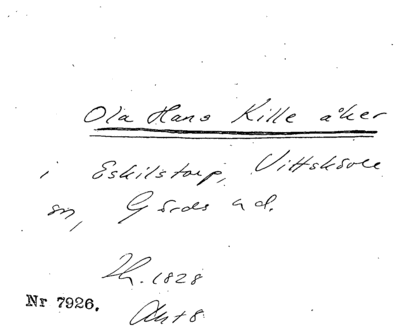 Ola Hans Kille åker
i Eskilstorp, Vittskövle
sn, Gärds hd.
Zh. 1828
Nr 7926.